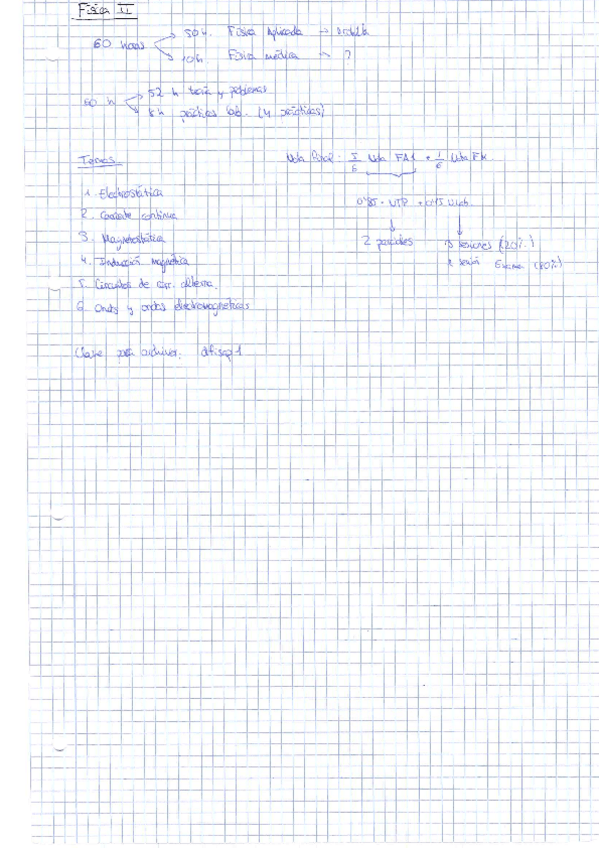 Física II
60 horas → 50 h. Física Aplicada →
→ 10 h. Física médica → ?
60 h → 52 h teoría y problemas
→ 8 h prácticas lab. (4 prácticas)
Temas
Nota final: 5/6 Nota FA1 + 1/6 Nota FM
1. Electrostática
0'85 · NTP + 0'15 Nlab.
2. Corriente continua
3. Magnetostática
2 parciales
3 sesiones (20%)
4. Inducción magnética
1 sesión Examen (80%)
5. Circuitos de corr. alterna.
6. Ondas y ondas electromagnéticas
Clave para archivos: